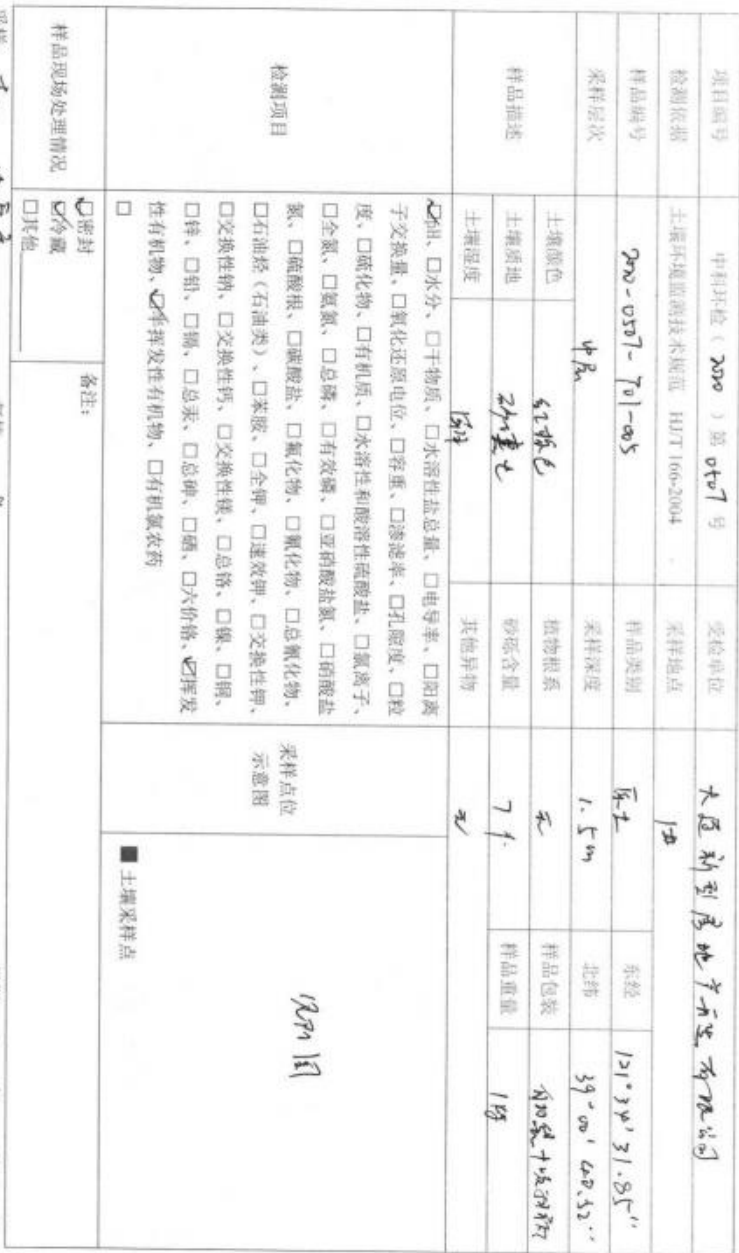 项目编号 中科环检（ 2020 ）第 0507 号 受检单位 大连新型房地产开发有限公司
检测依据 土壤环境监测技术规范 HJ/T 166-2004 采样地点 1#
样品编号 2020-0507-T01-005 样品类别 东经 121°34′31.85″
采样层次 中层 采样深度 1.5m 北纬 39°00′
样品描述 土壤颜色 红棕色 植物根系 无 样品包装
土壤质地 砂壤土 砂砾含量 7% 样品重量
土壤湿度 其他异物 无
检测项目
☑pH、□水分、□干物质、□水溶性盐总量、□电导率、□阳离
子交换量、□氧化还原电位、□容重、□渗滤率、□孔隙度、□粒
度、□硫化物、□有机质、□水溶性和酸溶性硫酸盐、□氯离子、
□全氮、□氨氮、□总磷、□有效磷、□亚硝酸盐氮、□硝酸盐
氮、□硫酸根、□碳酸盐、□氟化物、□氰化物、□总氰化物、
□石油烃（石油类）、□苯胺、□全钾、□速效钾、□交换性钾、
□交换性钠、□交换性钙、□交换性镁、□总铬、□镍、□铜、
□锌、□铅、□镉、□总汞、□总砷、□硒、□六价铬、☑挥发
性有机物、☑半挥发性有机物、□有机氯农药
□
采样点位
示意图
见附图
■ 土壤采样点
样品现场处理情况
☑密封
☑冷藏
□其他
备注：
采样